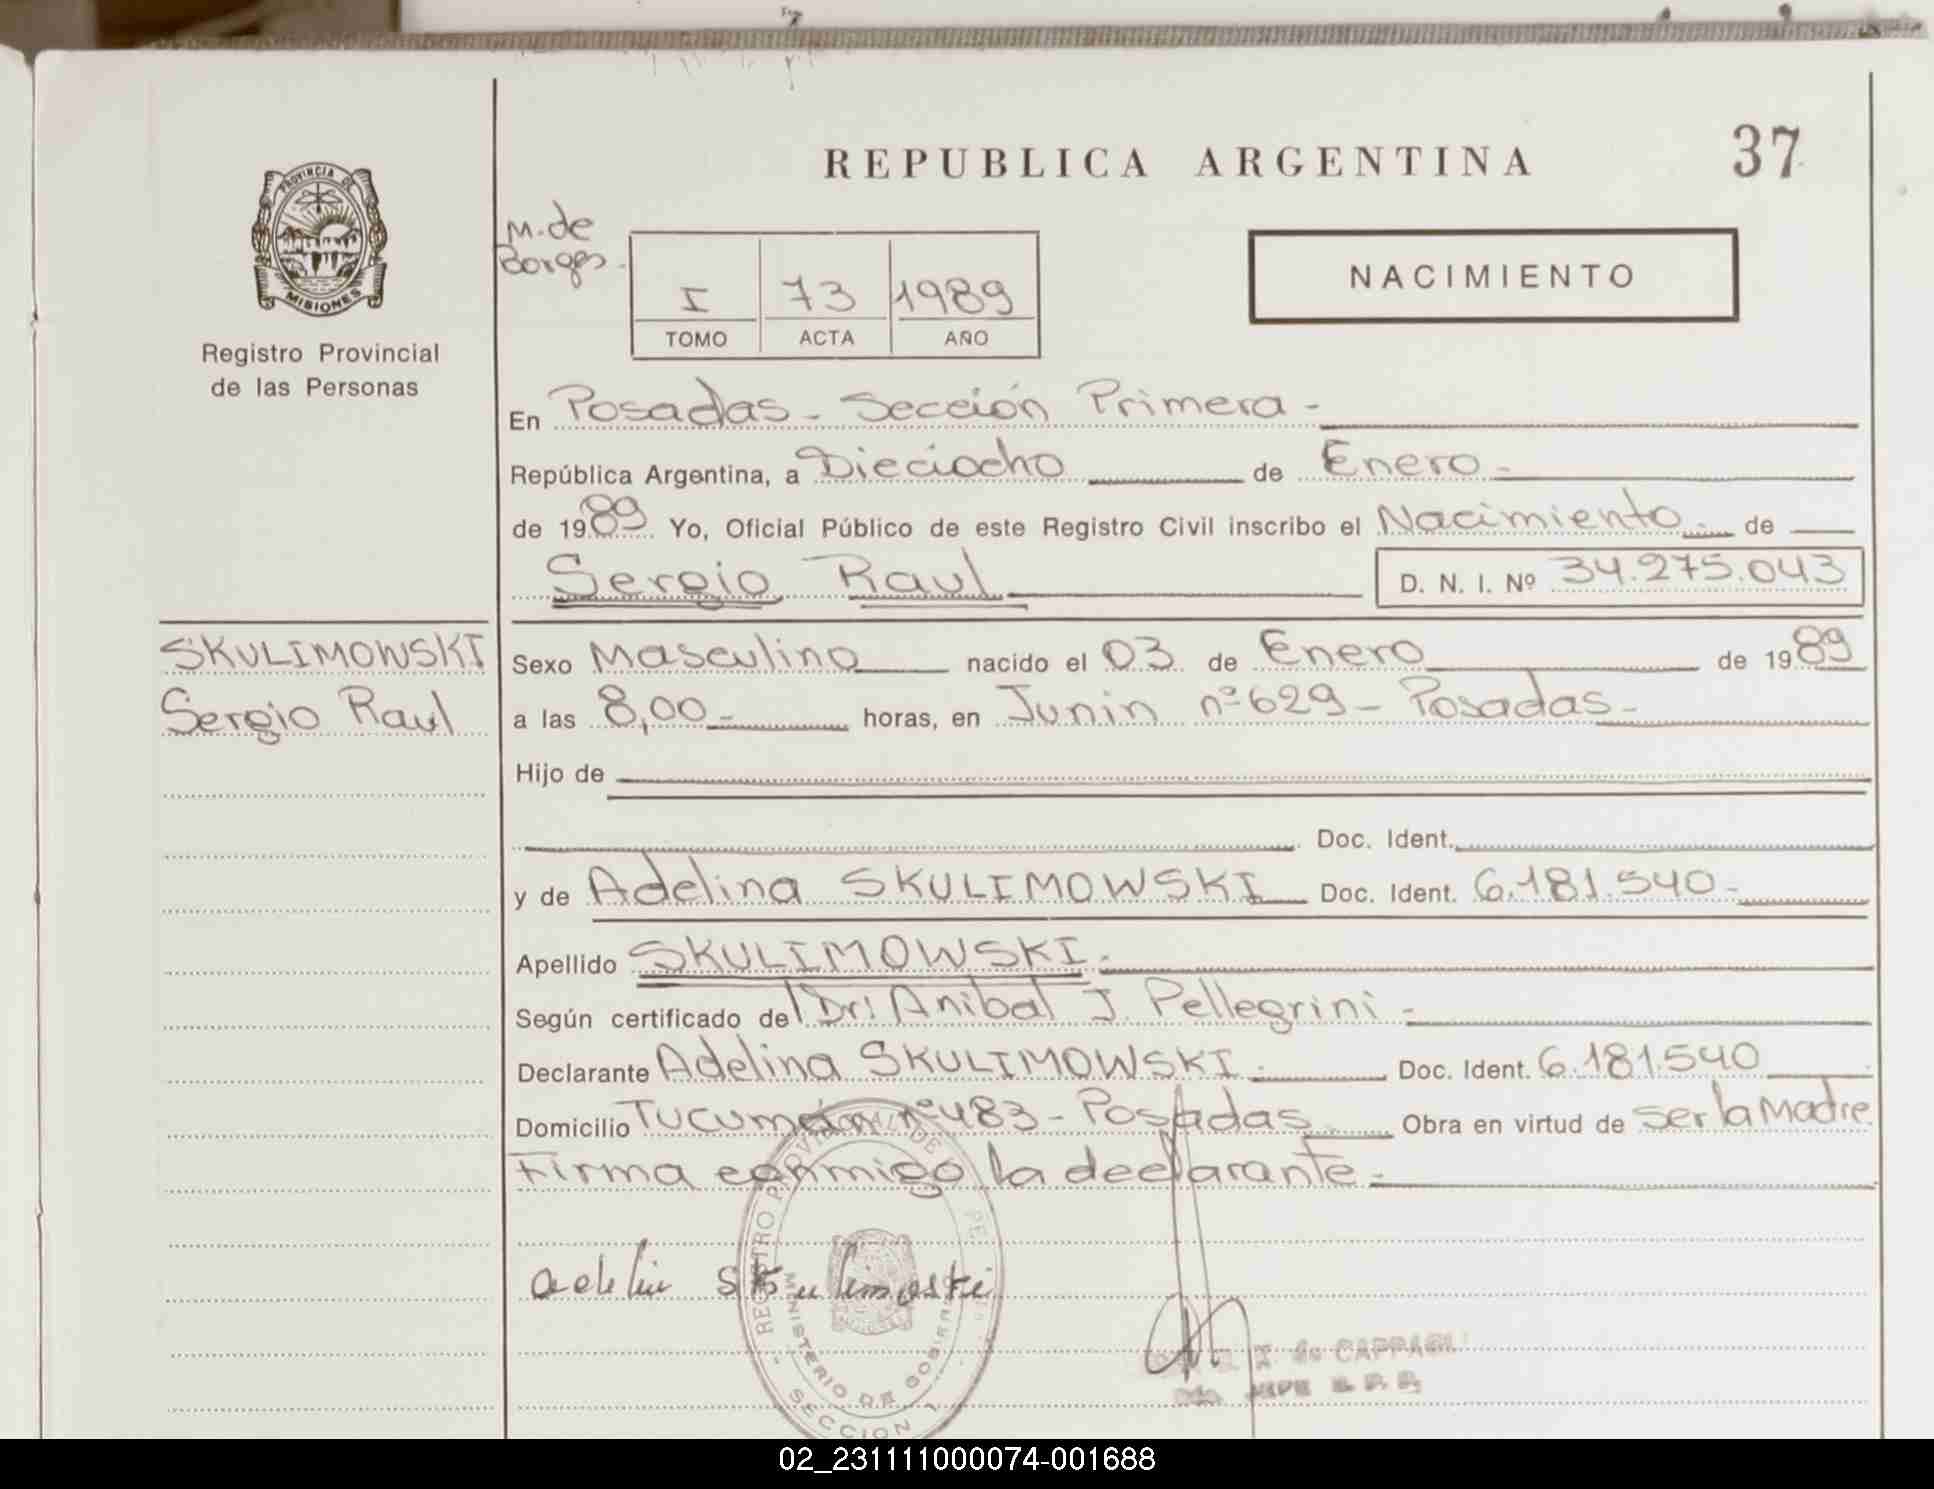 REPUBLICA ARGENTINA
37
PROVINCIA DE
MISIONES
Registro Provincial
de las Personas
M. de
Borges -
I 73 1989
TOMO ACTA AÑO
NACIMIENTO
En Posadas - Sección Primera -
República Argentina, a Dieciocho de Enero -
de 1989 Yo, Oficial Público de este Registro Civil inscribo el Nacimiento - de
Sergio Raul D. N. I. Nº 34.275.043
SKULIMOWSKI
Sergio Raul
Sexo Masculino nacido el 03 de Enero de 1989
a las 8,00 - horas, en Junin nº 629 - Posadas -
Hijo de
Doc. Ident.
y de Adelina SKULIMOWSKI Doc. Ident. 6.181.540 -
Apellido SKULIMOWSKI -
Según certificado del Dr: Anibal J. Pellegrini -
Declarante Adelina SKULIMOWSKI - Doc. Ident. 6.181.540
Domicilio Tucumán nº 483 - Posadas Obra en virtud de ser la Madre
Firma conmigo la declarante -
REGISTRO PROVINCIAL DE
MINISTERIO DE GOBIERNO
SECCION 1
de CAPPAGLI
JEFE
02_231111000074-001688